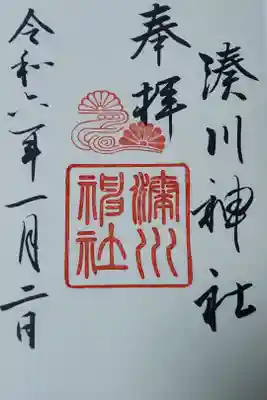 湊川神社
奉拝
湊川神社
令和六年一月二日